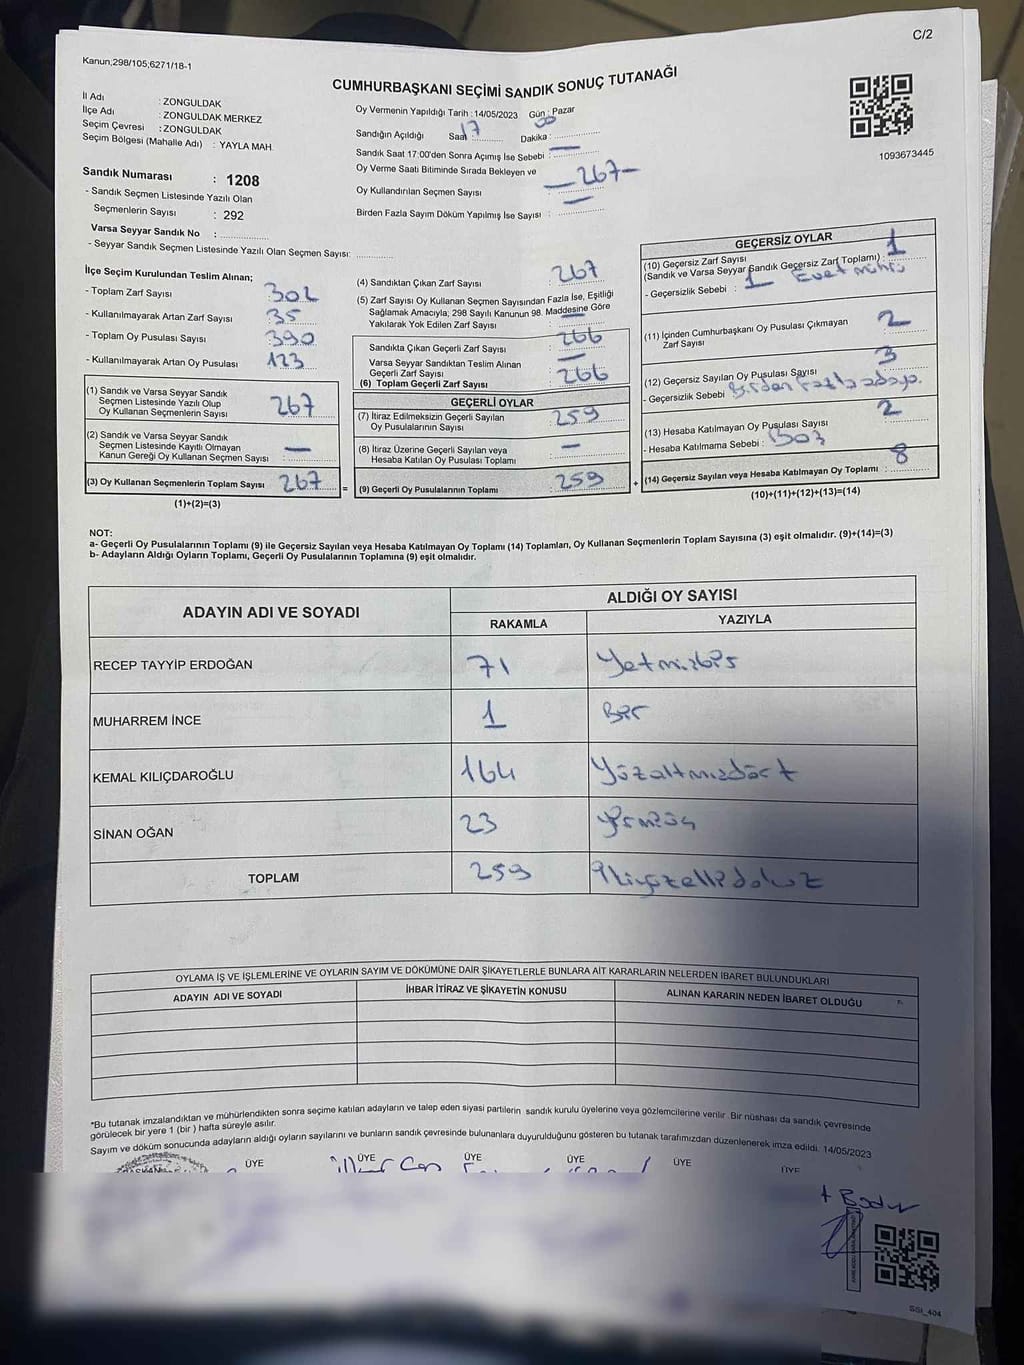 C/2
Kanun;298/105;6271/18-1
CUMHURBAŞKANI SEÇİMİ SANDIK SONUÇ TUTANAĞI
İl Adı : ZONGULDAK
İlçe Adı : ZONGULDAK MERKEZ
Seçim Çevresi : ZONGULDAK
Seçim Bölgesi (Mahalle Adı) : YAYLA MAH.
Oy Vermenin Yapıldığı Tarih : 14/05/2023 Gün : Pazar
Sandığın Açıldığı Saat 17 Dakika : 00
Sandık Saat 17:00'den Sonra Açımış İse Sebebi : —
Oy Verme Saati Bitiminde Sırada Bekleyen ve
Oy Kullandırılan Seçmen Sayısı — 267 —
Birden Fazla Sayım Döküm Yapılmış İse Sayısı : —
1093673445
Sandık Numarası : 1208
- Sandık Seçmen Listesinde Yazılı Olan
Seçmenlerin Sayısı : 292
Varsa Seyyar Sandık No :
- Seyyar Sandık Seçmen Listesinde Yazılı Olan Seçmen Sayısı:
İlçe Seçim Kurulundan Teslim Alınan;
- Toplam Zarf Sayısı : 302
- Kullanılmayarak Artan Zarf Sayısı : 35
- Toplam Oy Pusulası Sayısı : 390
- Kullanılmayarak Artan Oy Pusulası : 123
(1) Sandık ve Varsa Seyyar Sandık
Seçmen Listesinde Yazılı Olup
Oy Kullanan Seçmenlerin Sayısı : 267
(2) Sandık ve Varsa Seyyar Sandık
Seçmen Listesinde Kayıtlı Olmayan
Kanun Gereği Oy Kullanan Seçmen Sayısı : —
(3) Oy Kullanan Seçmenlerin Toplam Sayısı : 267
(1)+(2)=(3)
(4) Sandıktan Çıkan Zarf Sayısı : 267
(5) Zarf Sayısı Oy Kullanan Seçmen Sayısından Fazla İse, Eşitliği
Sağlamak Amacıyla; 298 Sayılı Kanunun 98. Maddesine Göre
Yakılarak Yok Edilen Zarf Sayısı : —
Sandıkta Çıkan Geçerli Zarf Sayısı : 266
Varsa Seyyar Sandıktan Teslim Alınan
Geçerli Zarf Sayısı : —
(6) Toplam Geçerli Zarf Sayısı : 266
GEÇERLİ OYLAR
(7) İtiraz Edilmeksizin Geçerli Sayılan
Oy Pusulalarının Sayısı : 259
(8) İtiraz Üzerine Geçerli Sayılan veya
Hesaba Katılan Oy Pusulası Toplamı : —
(9) Geçerli Oy Pusulalarının Toplamı : 259
GEÇERSİZ OYLAR
(10) Geçersiz Zarf Sayısı
(Sandık ve Varsa Seyyar Sandık Geçersiz Zarf Toplamı) : 1
- Geçersizlik Sebebi : 1 Evet mührü
(11) İçinden Cumhurbaşkanı Oy Pusulası Çıkmayan
Zarf Sayısı : 2
(12) Geçersiz Sayılan Oy Pusulası Sayısı : 3
- Geçersizlik Sebebi Birden fazla adaya.
(13) Hesaba Katılmayan Oy Pusulası Sayısı : 2
- Hesaba Katılmama Sebebi : Boş
(14) Geçersiz Sayılan veya Hesaba Katılmayan Oy Toplamı : 8
(10)+(11)+(12)+(13)=(14)
NOT:
a- Geçerli Oy Pusulalarının Toplamı (9) ile Geçersiz Sayılan veya Hesaba Katılmayan Oy Toplamı (14) Toplamları, Oy Kullanan Seçmenlerin Toplam Sayısına (3) eşit olmalıdır. (9)+(14)=(3)
b- Adayların Aldığı Oyların Toplamı, Geçerli Oy Pusulalarının Toplamına (9) eşit olmalıdır.
ADAYIN ADI VE SOYADI ALDIĞI OY SAYISI
RAKAMLA YAZIYLA
RECEP TAYYİP ERDOĞAN 71 Yetmişbir
MUHARREM İNCE 1 Bir
KEMAL KILIÇDAROĞLU 164 Yüzaltmışdört
SİNAN OĞAN 23 Yirmiüç
TOPLAM 259 İkiyüzellidokuz
OYLAMA İŞ VE İŞLEMLERİNE VE OYLARIN SAYIM VE DÖKÜMÜNE DAİR ŞİKAYETLERLE BUNLARA AİT KARARLARIN NELERDEN İBARET BULUNDUKLARI
ADAYIN ADI VE SOYADI İHBAR İTİRAZ VE ŞİKAYETİN KONUSU ALINAN KARARIN NEDEN İBARET OLDUĞU
*Bu tutanak imzalandıktan ve mühürlendikten sonra seçime katılan adayların ve talep eden siyasi partilerin sandık kurulu üyelerine veya gözlemcilerine verilir. Bir nüshası da sandık çevresinde
görülecek bir yere 1 (bir) hafta süreyle asılır.
Sayım ve döküm sonucunda adayların aldığı oyların sayılarını ve bunların sandık çevresinde bulunanlara duyurulduğunu gösteren bu tutanak tarafımızdan düzenlenerek imza edildi. 14/05/2023
ÜYE ÜYE ÜYE ÜYE ÜYE ÜYE
SSI_404